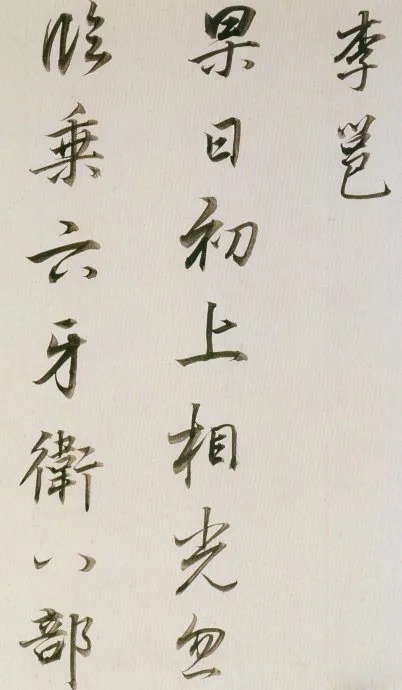 李邕
杲日初上相光忽
臨乗六牙衛八部